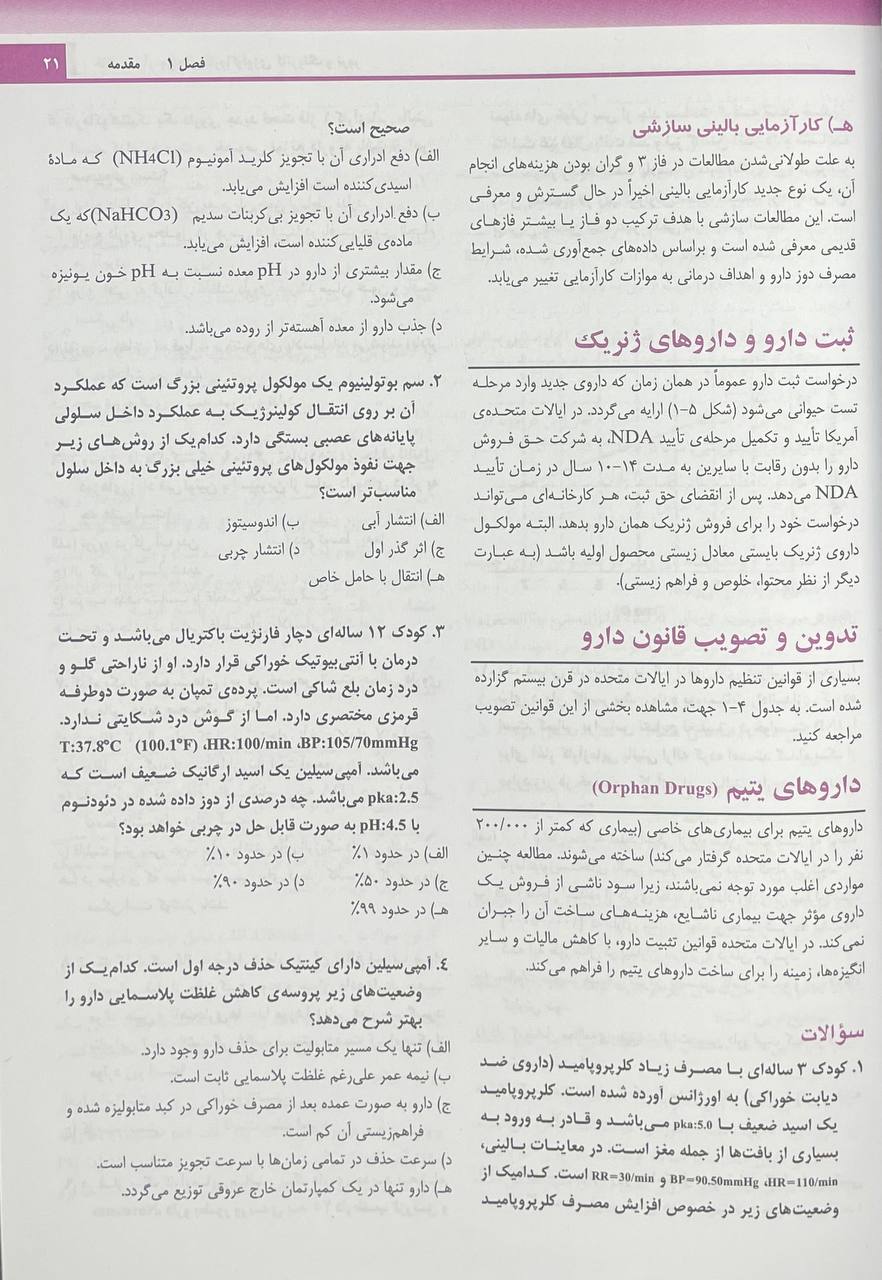 فصل ۱ مقدمه ۲۱
هـ) کارآزمایی بالینی سازشی
به علت طولانی‌شدن مطالعات در فاز ۳ و گران بودن هزینه‌های انجام
آن، یک نوع جدید کارآزمایی بالینی اخیراً در حال گسترش و معرفی
است. این مطالعات سازشی با هدف ترکیب دو فاز یا بیشتر فازهای
قدیمی معرفی شده است و براساس داده‌های جمع‌آوری شده، شرایط
مصرف دوز دارو و اهداف درمانی به موازات کارآزمایی تغییر می‌یابد.
ثبت دارو و داروهای ژنریک
درخواست ثبت دارو عموماً در همان زمان که داروی جدید وارد مرحله
تست حیوانی می‌شود (شکل ۵-۱) ارایه می‌گردد. در ایالات متحده‌ی
آمریکا تأیید و تکمیل مرحله‌ی تأیید NDA، به شرکت حق فروش
دارو را بدون رقابت با سایرین به مدت ۱۴-۱۰ سال در زمان تأیید
NDA می‌دهد. پس از انقضای حق ثبت، هر کارخانه‌ای می‌تواند
درخواست خود را برای فروش ژنریک همان دارو بدهد. البته مولکول
داروی ژنریک بایستی معادل زیستی محصول اولیه باشد (به عبارت
دیگر از نظر محتوا، خلوص و فراهم زیستی).
تدوین و تصویب قانون دارو
بسیاری از قوانین تنظیم داروها در ایالات متحده در قرن بیستم گزارده
شده است. به جدول ۴-۱ جهت، مشاهده بخشی از این قوانین تصویب
مراجعه کنید.
داروهای یتیم (Orphan Drugs)
داروهای یتیم برای بیماری‌های خاصی (بیماری که کمتر از ۲۰۰/۰۰۰
نفر را در ایالات متحده گرفتار می‌کند) ساخته می‌شوند. مطالعه چنین
مواردی اغلب مورد توجه نمی‌باشند، زیرا سود ناشی از فروش یک
داروی مؤثر جهت بیماری ناشایع، هزینه‌های ساخت آن را جبران
نمی‌کند. در ایالات متحده قوانین تثبیت دارو، با کاهش مالیات و سایر
انگیزه‌ها، زمینه را برای ساخت داروهای یتیم را فراهم می‌کند.
سؤالات
۱. کودک ۳ ساله‌ای با مصرف زیاد کلرپروپامید (داروی ضد
دیابت خوراکی) به اورژانس آورده شده است. کلرپروپامید
یک اسید ضعیف با pka:5.0 می‌باشد و قادر به ورود به
بسیاری از بافت‌ها از جمله مغز است. در معاینات بالینی،
BP=90.50mmHg ،HR=110/min و RR=30/min است. کدامیک از
وضعیت‌های زیر در خصوص افزایش مصرف کلرپروپامید
صحیح است؟
الف) دفع ادراری آن با تجویز کلرید آمونیوم (NH4Cl) که مادهٔ
اسیدی‌کننده است افزایش می‌یابد.
ب) دفع ادراری آن با تجویز بی‌کربنات سدیم (NaHCO3)که یک
ماده‌ی قلیایی‌کننده است، افزایش می‌یابد.
ج) مقدار بیشتری از دارو در pH معده نسبت به pH خون یونیزه
می‌شود.
د) جذب دارو از معده آهسته‌تر از روده می‌باشد.
۲. سم بوتولینیوم یک مولکول پروتئینی بزرگ است که عملکرد
آن بر روی انتقال کولینرژیک به عملکرد داخل سلولی
پایانه‌های عصبی بستگی دارد. کدام‌یک از روش‌های زیر
جهت نفوذ مولکول‌های پروتئینی خیلی بزرگ به داخل سلول
مناسب‌تر است؟
الف) انتشار آبی ب) اندوسیتوز
ج) اثر گذر اول د) انتشار چربی
هـ) انتقال با حامل خاص
۳. کودک ۱۲ ساله‌ای دچار فارنژیت باکتریال می‌باشد و تحت
درمان با آنتی‌بیوتیک خوراکی قرار دارد. او از ناراحتی گلو و
درد زمان بلع شاکی است. پرده‌ی تمپان به صورت دوطرفه
قرمزی مختصری دارد. اما از گوش درد شکایتی ندارد.
T:37.8°C (100.1°F) ،HR:100/min ،BP:105/70mmHg
می‌باشد. آمپی‌سیلین یک اسید ارگانیک ضعیف است که
pka:2.5 می‌باشد. چه درصدی از دوز داده شده در دئودنوم
با pH:4.5 به صورت قابل حل در چربی خواهد بود؟
الف) در حدود ۱٪ ب) در حدود ۱۰٪
ج) در حدود ۵۰٪ د) در حدود ۹۰٪
هـ) در حدود ۹۹٪
۴. آمپی‌سیلین دارای کینتیک حذف درجه اول است. کدام‌یک از
وضعیت‌های زیر پروسه‌ی کاهش غلظت پلاسمایی دارو را
بهتر شرح می‌دهد؟
الف) تنها یک مسیر متابولیت برای حذف دارو وجود دارد.
ب) نیمه عمر علی‌رغم غلظت پلاسمایی ثابت است.
ج) دارو به صورت عمده بعد از مصرف خوراکی در کبد متابولیزه شده و
فراهم‌زیستی آن کم است.
د) سرعت حذف در تمامی زمان‌ها با سرعت تجویز متناسب است.
هـ) دارو تنها در یک کمپارتمان خارج عروقی توزیع می‌گردد.